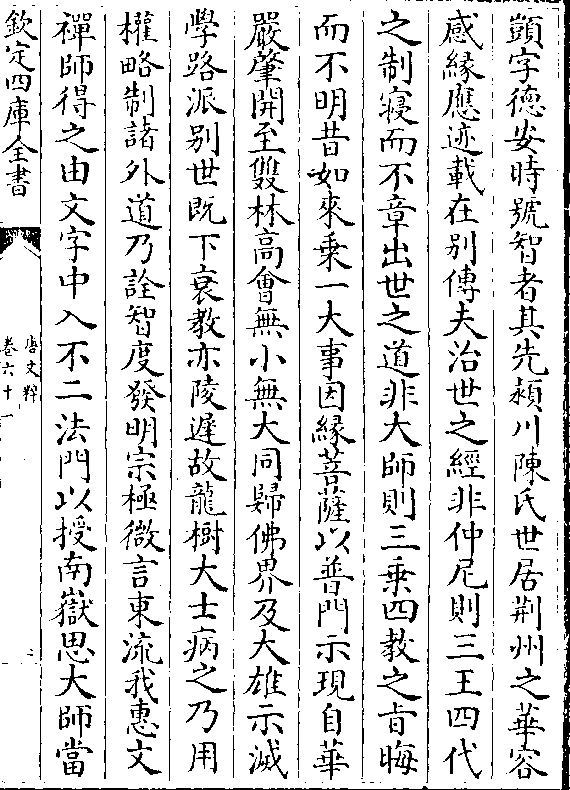 顗字德安時號智者其先潁川陳氏世居荆州之華容
感緣應迹載在别傳夫治世之經非仲尼則三王四代
之制寖而不章出世之道非大師則三乗四教之旨晦
而不明昔如來乗一大事因縁菩薩以普門示現自華
嚴肇開至雙林高㑹無小無大同歸佛界及大雄示滅
學路派别世既下衰教亦陵遲故龍樹大士病之乃用
權略制諸外道乃詮智度發明宗極微言東流我惠文
禪師得之由文字中入不二法門以授南嶽思大師當
欽定四庫全書
唐文粹
卷六十一